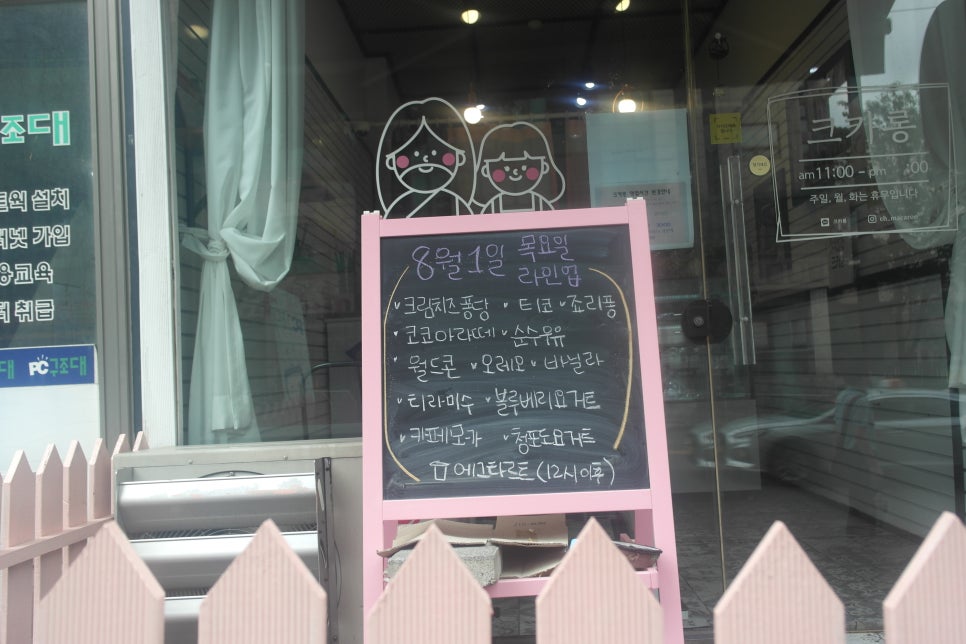 조대
트웍 설치
터넷 가입
용교육
터 취급
PC구조대
8월1일 목요일
라인업
크림치즈퐁당 티코 죠리퐁
코코아라떼 순수우유
월드콘 오레오 바닐라
티라미수 블루베리요거트
카페모카 청포도요거트
에그타르트(12시이후)
크카롱
am11:00 - pm :00
주일, 월, 화는 휴무입니다
크카롱 ch_macaron